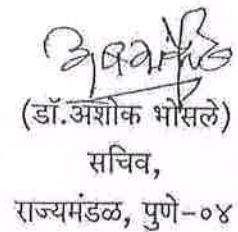 (डॉ.अशोक भोसले)
सचिव,
राज्यमंडळ, पुणे-०४